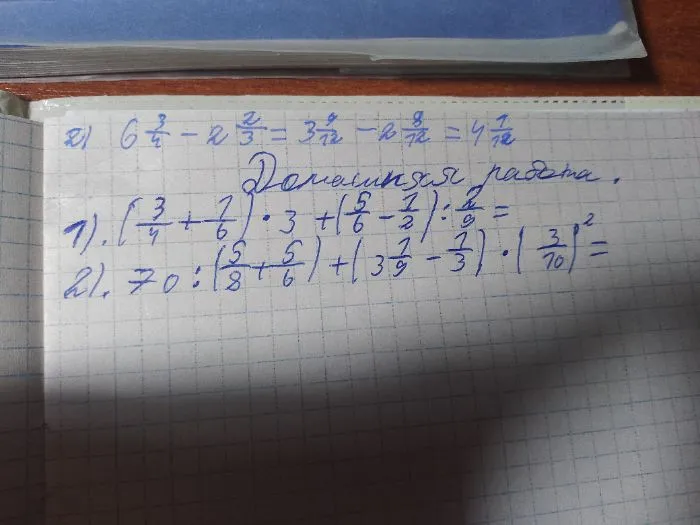 2) 6 3/4 - 2 2/3 = 3 9/12 - 2 8/12 = 4 1/12
Домашняя работа.
1). (3/4 + 1/6) · 3 + (5/6 - 1/2) : 2/9 =
2). 70 : (5/8 + 5/6) + (3 1/9 - 1/3) · (3/10)² =